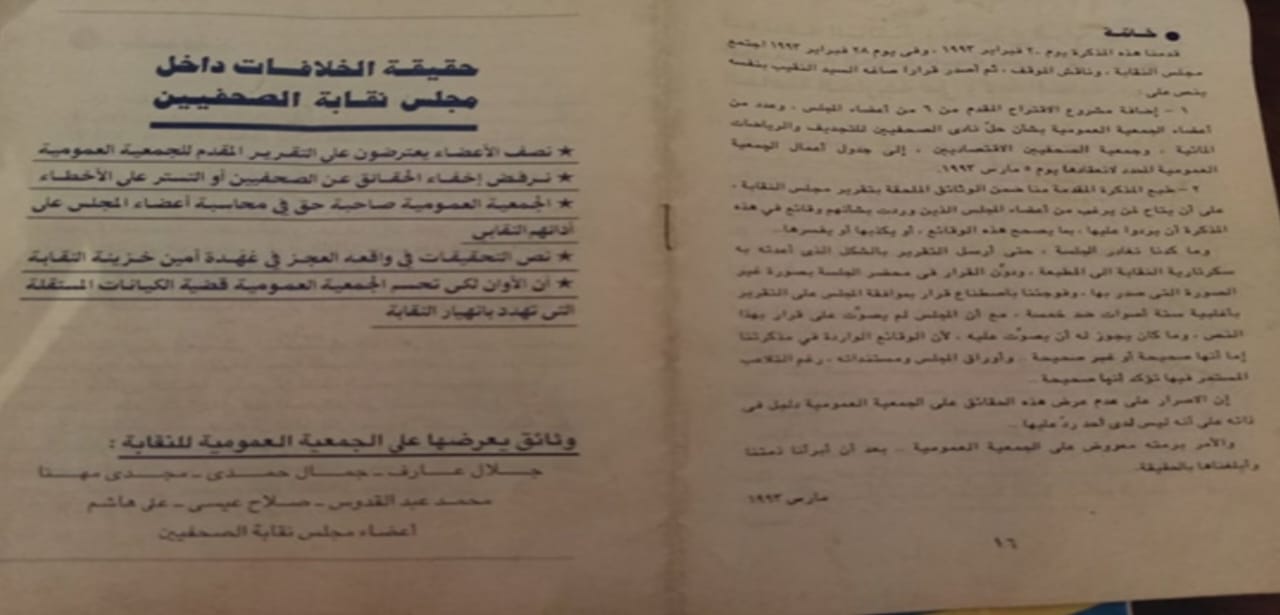 خاتمة
قدمنا هذه المذكرة يوم ٢٠ فبراير ١٩٩٣ ، وفى يوم ٢٨ فبراير ١٩٩٣ اجتمع
مجلس النقابة ، وناقش الموقف ، ثم أصدر قرارا صاغه السيد النقيب بنفسه
ينص على :
١ – إضافة مشروع الاقتراح المقدم من ٦ من أعضاء المجلس ، وعدد من
أعضاء الجمعية العمومية بشأن حلّ نادى الصحفيين للتجديف والرياضات
المائية ، وجمعية الصحفيين الاقتصاديين ، إلى جدول أعمال الجمعية
العمومية المحدد لانعقادها يوم ٥ مارس ١٩٩٣.
٢ – طبع المذكرة المقدمة منا ضمن الوثائق الملحقة بتقرير مجلس النقابة ،
على أن يتاح لمن يرغب من أعضاء المجلس الذين وردت بشأنهم وقائع في هذه
المذكرة أن يردوا عليها ، بما يصحح هذه الوقائع ، أو يكذبها أو يفسرها..
وما كدنا نغادر الجلسة ، حتى أرسل التقرير بالشكل الذى أعدته به
سكرتارية النقابة الى المطبعة ، ودوّن القرار فى محضر الجلسة بصورة غير
الصورة التى صدر بها ، وفوجئنا باصطناع قرار بموافقة المجلس على التقرير
بأغلبية ستة أصوات ضد خمسة ، مع أن المجلس لم يصوّت على قرار بهذا
النص ، وما كان يجوز له أن يصوّت عليه ، لأن الوقائع الواردة في مذكرتنا
إما أنها صحيحة أو غير صحيحة .. وأوراق المجلس ومستنداته ، رغم التلاعب
المستمر فيها تؤكد أنها صحيحة ..
إن الاصرار على عدم عرض هذه الحقائق على الجمعية العمومية دليل فى
ذاته على أنه ليس لدى أحد ردّ عليها ..
والأمر برمته معروض على الجمعية العمومية .. بعد أن أبرأنا ذمتنا
وأبلغناها بالحقيقة.
مارس ١٩٩٣
١٦
حقيقة الخلافات داخل
مجلس نقابة الصحفيين
★ نصف الأعضاء يعترضون على التقرير المقدم للجمعية العمومية
★ نرفض إخفاء الحقائق عن الصحفيين أو التستر على الأخطاء
★ الجمعية العمومية صاحبة حق في محاسبة أعضاء المجلس على
أدائهم النقابى
★ نص التحقيقات في واقعة العجز في عُهدة أمين خزينة النقابة
★ آن الأوان لكى تحسم الجمعية العمومية قضية الكيانات المستقلة
التى تهدد بانهيار النقابة
وثائق يعرضها على الجمعية العمومية للنقابة :
جلال عارف – جمال حمدى – مجدى مهنا
محمد عبد القدوس – صلاح عيسى – على هاشم
أعضاء مجلس نقابة الصحفيين